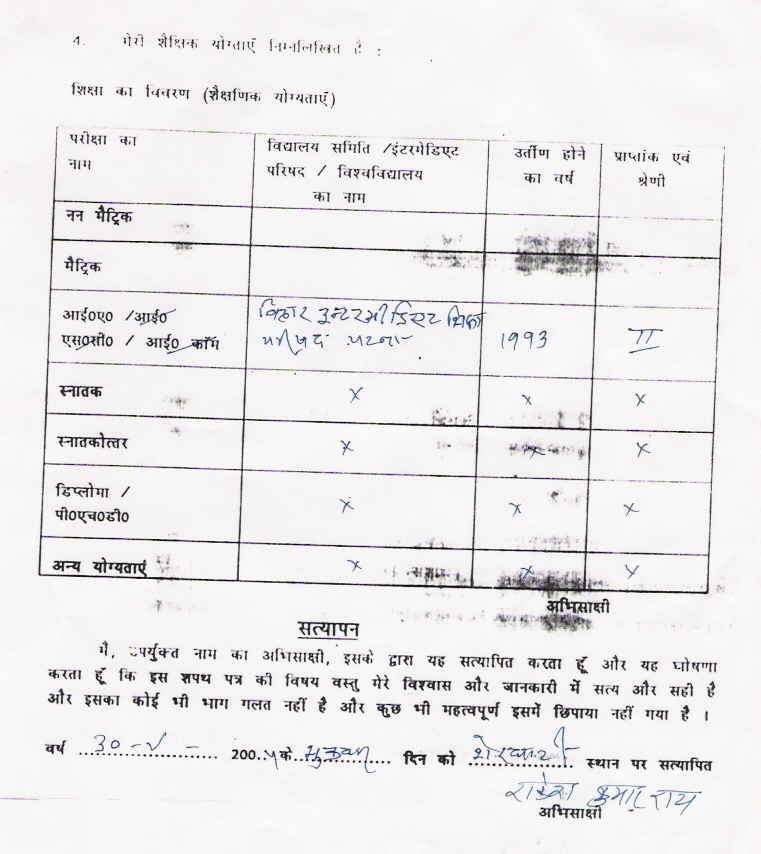 4. मेरी शैक्षिक योग्ताएँ निम्नलिखित है :
शिक्षा का विवरण (शैक्षणिक योग्यताएँ)
परीक्षा का नाम
विद्यालय समिति /इंटरमेडिएट परिषद / विश्वविद्यालय का नाम
उर्तीण होने का वर्ष
प्राप्तांक एवं श्रेणी
नन मैट्रिक
मैट्रिक
आई०ए० /आई०
एस०सी० / आई० कॉम
बिहार इन्टरमीडिएट शिक्षा
परिषद पटना
1993
II
स्नातक x x x
स्नातकोत्तर x x x
डिप्लोमा /
पी०एच०डी० x x x
अन्य योग्यताएं x x x
अभिसाक्षी
सत्यापन
मैं, उपर्युक्त नाम का अभिसाक्षी, इसके द्वारा यह सत्यापित करता हूँ और यह घोषणा
करता हूँ कि इस शपथ पत्र की विषय वस्तु मेरे विश्वास और जानकारी में सत्य और सही है
और इसका कोई भी भाग गलत नहीं है और कुछ भी महत्वपूर्ण इसमें छिपाया नहीं गया है ।
वर्ष 30 200 के दिन को स्थान पर सत्यापित
राकेश कुमार राय
अभिसाक्षी